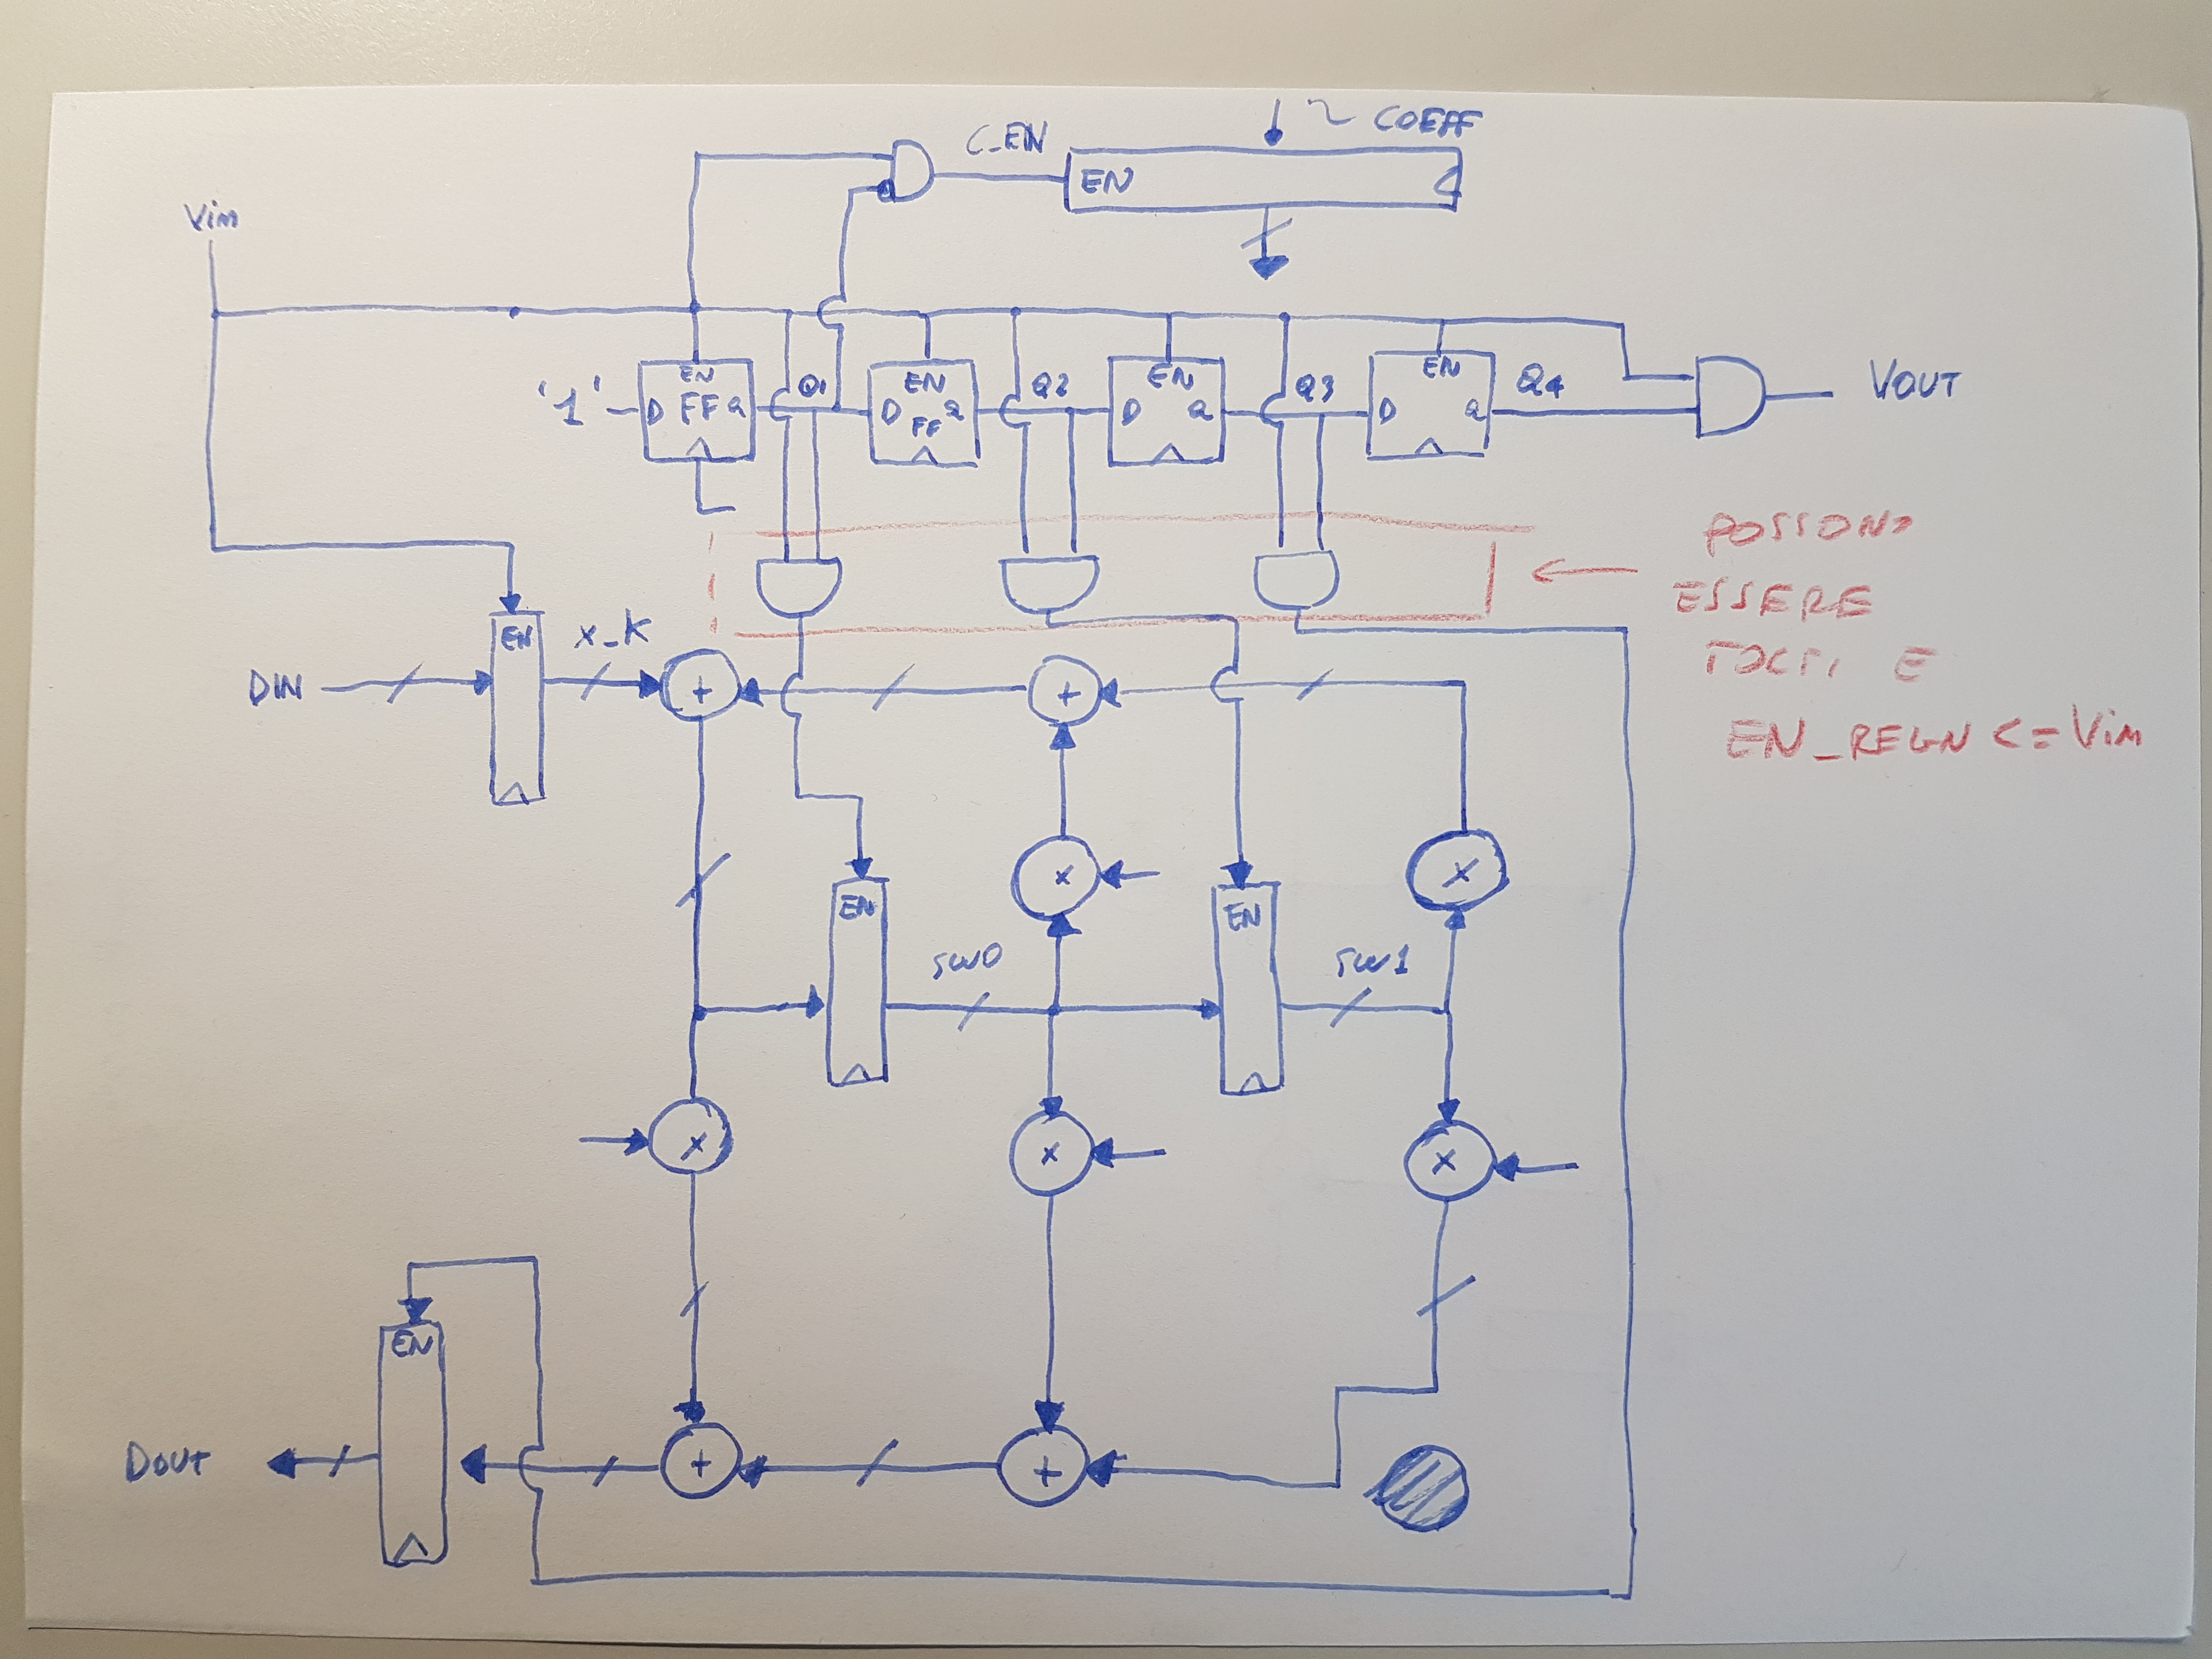 ~ COEFF
C_EN
EN
Vin
EN
EN
EN
EN
'1'
D FF Q
Q1
D FF Q
Q2
D Q
Q3
D Q
Q4
VOUT
POSSONO
ESSERE
TOLTI E
EN_REGN <= Vin
EN
x_K
DIN
+
+
x
x
EN
EN
sw0
sw1
x
x
x
EN
DOUT
+
+